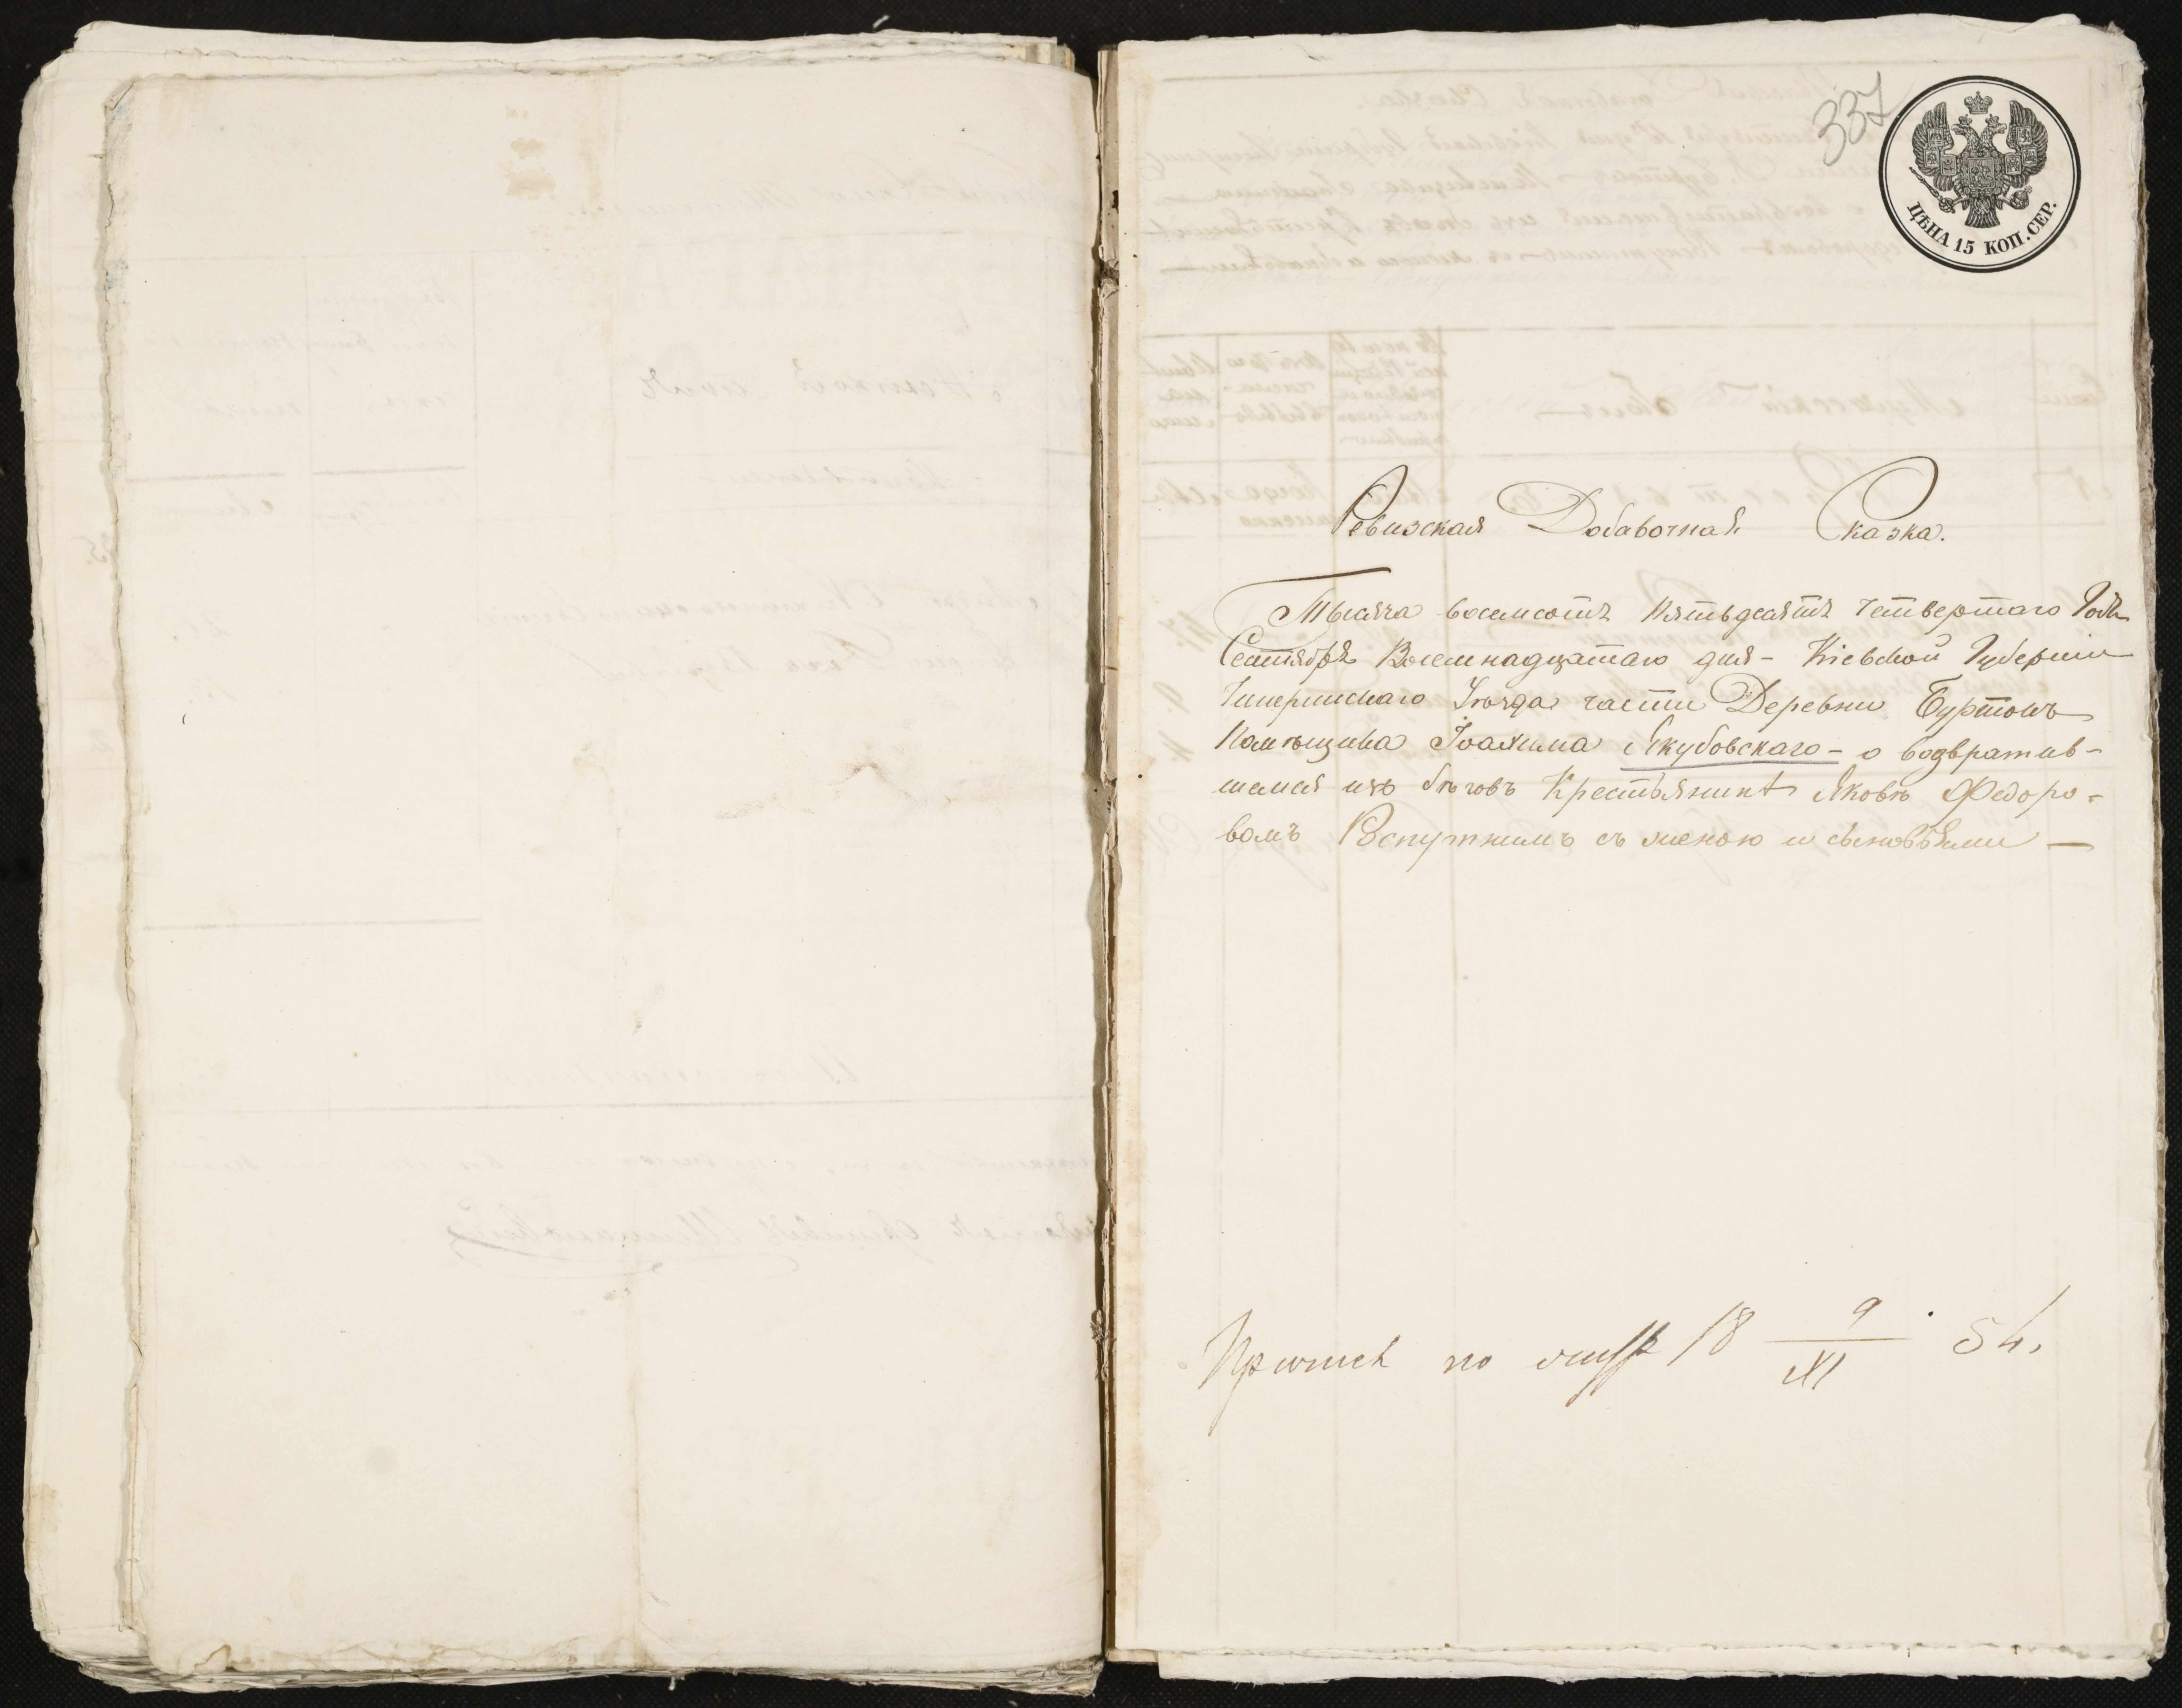 337
ЦѢНА 15 КОП. СЕР.
Ревизская Добавочная Сказка.
Тысяча восемсотъ Пятьдесятъ четвертаго Года
Сентября Восемнадцатаго дня - Кіевской Губерніи
Чигеринскаго Уѣзда части Деревни Буртокъ
Помѣщика Іоахима Якубовскаго - о возвратив-
шемся изъ бѣговъ Крестьянинѣ Яковѣ Федоро-
вомъ Распутнимъ съ женою и сыновьями —
по 18 9/XI 54.